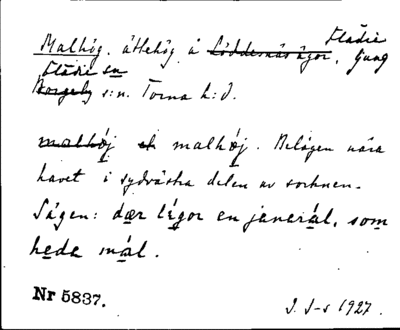 Malhög. ättehög å ~~Löddesnäs ägor~~, Flädie Gung
Flädie sn
~~Borgeby~~ s:n. Torna h:d.
~~malhöj~~ ~~el~~ malhøj. Belägen nära
havet i sydvästra delen av socknen.
Sägen: dær légor en janerál, som
heda mál.
Nr 5837.
J. S-s 1927.